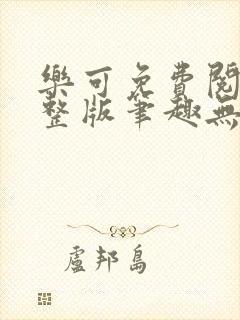 樂可免費閱
整版筆趣無
盧邦島